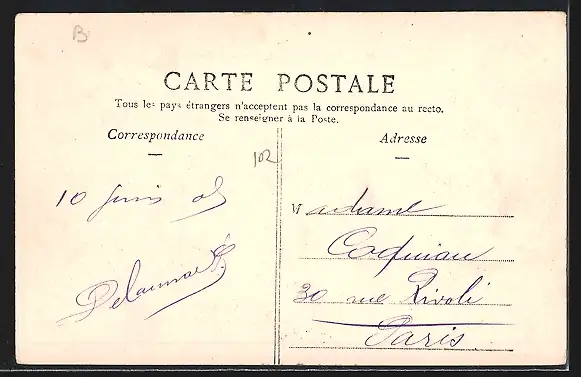 B
CARTE POSTALE
Tous les pays étrangers n'acceptent pas la correspondance au recto.
Se renseigner à la Poste.
Correspondance
102
10 Juin 05
Adresse
Madame
Coquiau
30 rue Rivoli
Paris